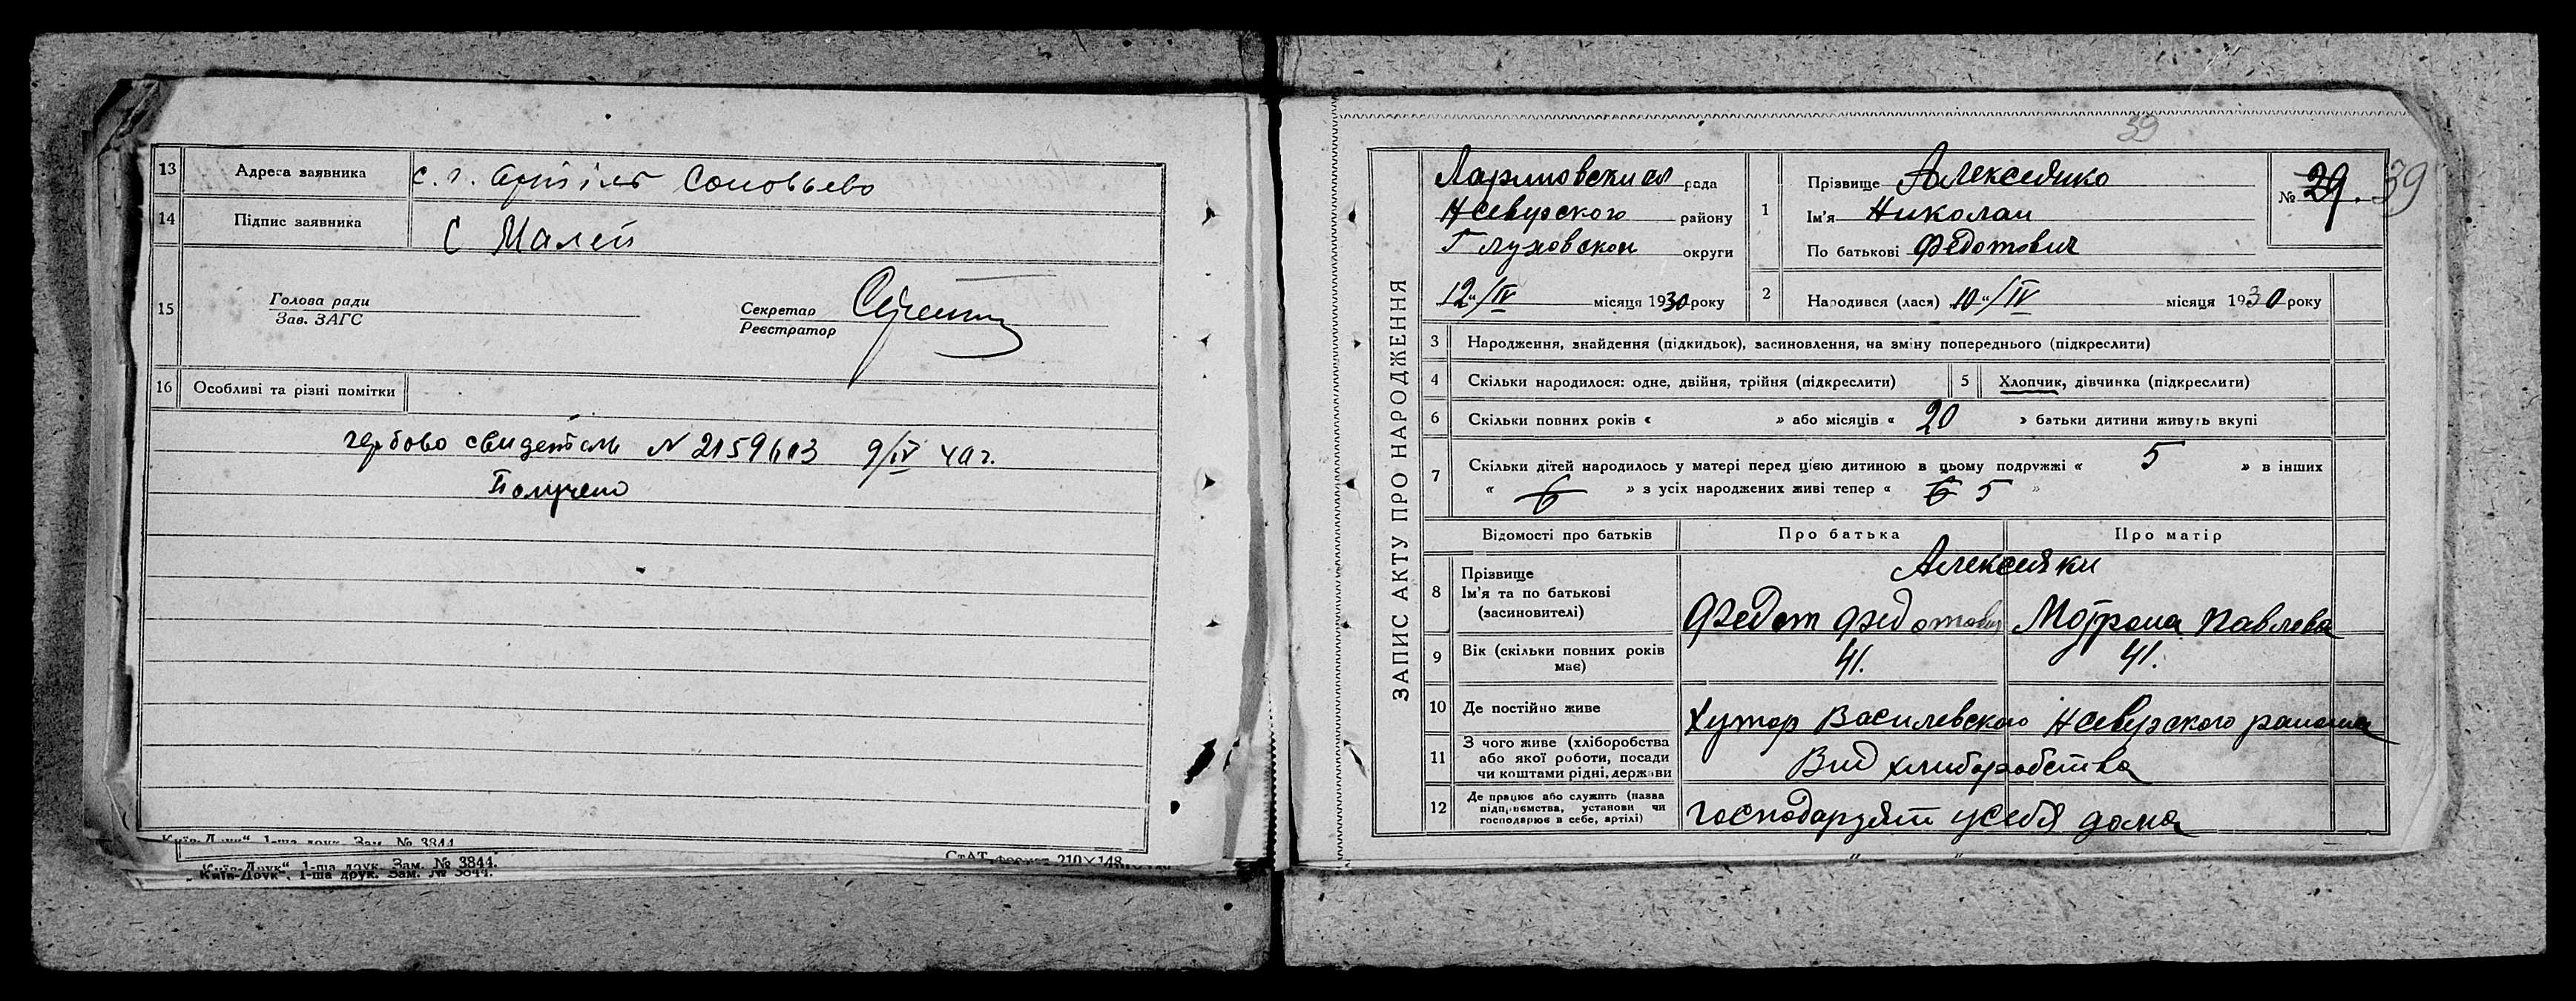 13 Адреса заявника с. г. Соловьево
14 Підпис заявника С Малей
15 Голова ради
Зав. ЗАГС
Секретар
Реєстратор
16 Особливі та різні помітки
гербово свидетель N 2159603 9/IV 40 г.
Получено
Київ-Друк“ 1-ша друк. Зам. № 3844
„Київ-Друк“, 1-ша друк. Зам. № 3844.
СтАТ формат 210×148
39
ЗАПИС АКТУ ПРО НАРОДЖЕННЯ
рада
Н Севурского району
Глуховской округи
12“/IV місяця 1930 року
1 Прізвище Алексеянко
Ім'я Николай
По батькові Федотович
№ 29. 39
2 Народився (лася) 10“/IV місяця 1930 року
3 Народження, знайдення (підкидьок), засиновлення, на зміну попереднього (підкреслити)
4 Скільки народилося: одне, двійня, трійня (підкреслити)
5 Хлопчик, дівчинка (підкреслити)
6 Скільки повних років « » або місяців « 20 » батьки дитини живуть вкупі
7 Скільки дітей народилось у матері перед цією дитиною в цьому подружжі « 5 » в інших
« 6 » з усіх народжених живі тепер « 6 5 »
Відомості про батьків Про батька Про матір
8 Прізвище
Ім'я та по батькові
(засиновителі)
Алексеяки
Федот Федотович Мотрона Павлова
9 Вік (скільки повних років має) 41. 41.
10 Де постійно живе Хутор Василевского Н Севурского района
11 З чого живе (хліборобства
або якої роботи, посади
чи коштами рідні, держави
Вид хлиборобства
12 Де працює або служить (назва
підприємства, установи чи
господарює в себе, артілі)
господаруят усебя дома